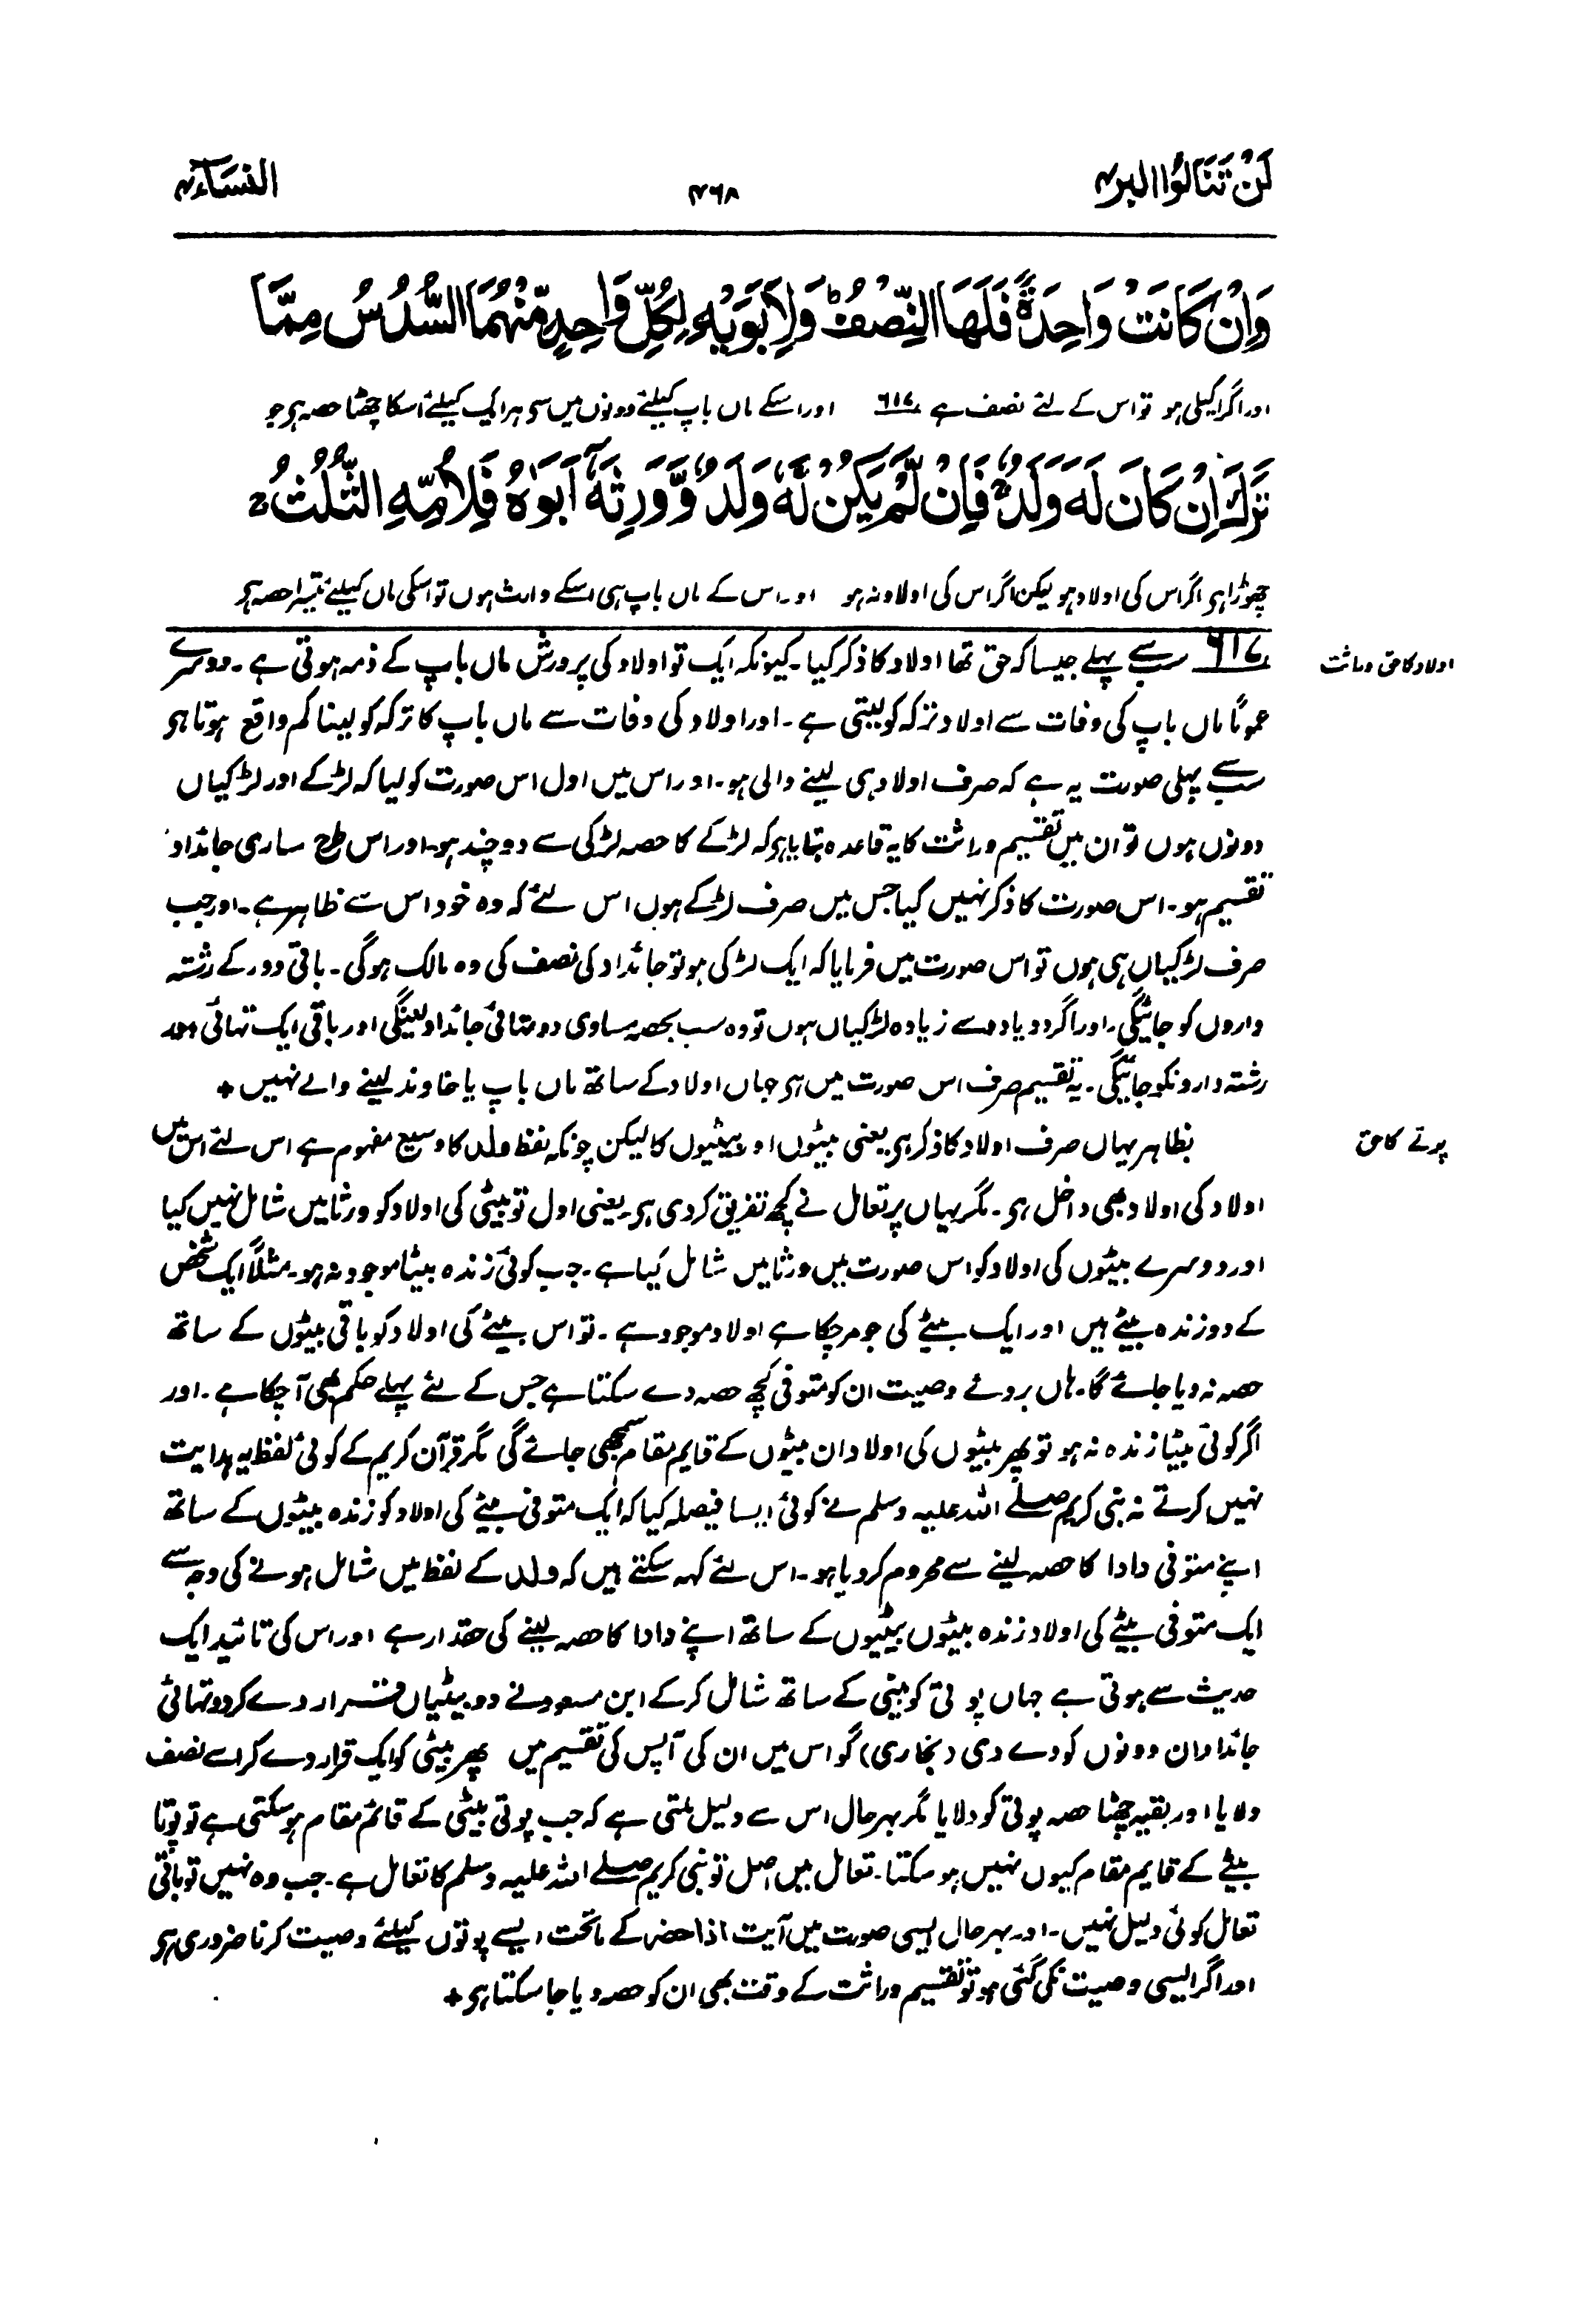 لَنْ تَنَالُوا البر ۴
۴۶۸
النساء ۴
وَاِنْ كَانَتْ وَاحِدَةً فَلَهَا النِّصْفُ ؕ وَلِاَبَوَيْهِ لِكُلِّ وَاحِدٍ مِّنْهُمَا السُّدُسُ مِمَّا
اور اگر اکیلی ہو تو اس کے لئے نصف ہے ۶۱۷ اور اسکے ماں باپ کیلئے دونوں میں سے ہر ایک کیلئے اسکا چھٹا حصہ ہے جو
تَرَكَ اِنْ كَانَ لَهٗ وَلَدٌ ۚ فَاِنْ لَّمْ يَكُنْ لَّهٗ وَلَدٌ وَّوَرِثَهٗٓ اَبَوٰهُ فَلِاُمِّهِ الثُّلُثُ ۚ
چھوڑا ہے اگر اس کی اولاد ہو لیکن اگر اس کی اولاد نہ ہو اور اس کے ماں باپ ہی اسکے وارث ہوں تو اسکی ماں کیلئے تیسرا حصہ ہے
اولاد کا حق وراثت
۶۱۷ سب سے پہلے جیسا کہ حق تھا اولاد کا ذکر کیا۔ کیونکہ ایک تو اولاد کی پرورش ماں باپ کے ذمہ ہوتی ہے۔ دوسرے
عموماً ماں باپ کی وفات سے اولاد ترکہ کو لیتی ہے۔ اور اولاد کی وفات سے ماں باپ کا ترکہ کو لینا کم واقع ہوتا ہے
سب سے پہلی صورت یہ ہے کہ صرف اولاد ہی لینے والی ہو۔ اور اس میں اول اس صورت کو لیا کہ لڑکے اور لڑکیاں
دونوں ہوں تو ان میں تقسیم وراثت کا یہ قاعدہ بتایا ہے کہ لڑکے کا حصہ لڑکی سے دو چند ہو۔ اور اس طرح ساری جائداد
تقسیم ہو۔ اس صورت کا ذکر نہیں کیا جس میں صرف لڑکے ہوں اس لئے کہ وہ خود اس سے ظاہر ہے۔ اور جب
صرف لڑکیاں ہی ہوں تو اس صورت میں فرمایا کہ ایک لڑکی ہو تو جائداد کی نصف کی وہ مالک ہوگی۔ باقی دور کے رشتہ
داروں کو جائیگی۔ اور اگر دو یا دو سے زیادہ لڑکیاں ہوں تو وہ سب بحصہ مساوی دو تہائی جائداد لینگی اور باقی ایک تہائی دور
رشتہ دارونکو جائیگی۔ یہ تقسیم صرف اس صورت میں ہے جہاں اولاد کے ساتھ ماں باپ یا خاوند لینے والے نہیں +
پوتے کا حق
بظاہر یہاں صرف اولاد کا ذکر ہے یعنی بیٹوں اور بیٹیوں کا لیکن چونکہ لفظ ولد کا وسیع مفہوم ہے اس لئے اس میں
اولاد کی اولاد بھی داخل ہے۔ مگر یہاں پر تعامل نے کچھ تفریق کر دی ہے۔ یعنی اول تو بیٹی کی اولاد کو ورثا میں شامل نہیں کیا
اور دوسرے بیٹوں کی اولاد کو اس صورت میں ورثا میں شامل کیا ہے۔ جب کوئی زندہ بیٹا موجود نہ ہو۔ مثلاً ایک شخص
کے دو زندہ بیٹے ہیں اور ایک بیٹے کی جو مر چکا ہے اولاد موجود ہے۔ تو اس بیٹے کی اولاد کو باقی بیٹوں کے ساتھ
حصہ نہ دیا جائے گا۔ ہاں بروئے وصیت ان کو متوفی کچھ حصہ دے سکتا ہے جس کے لئے پہلے حکم بھی آ چکا ہے۔ اور
اگر کوئی بیٹا زندہ نہ ہو تو پھر بیٹوں کی اولاد ان بیٹوں کے قایم مقام سمجھی جائے گی مگر قرآن کریم کے کوئی لفظ یہ ہدایت
نہیں کرتے نہ نبی کریم صلے اللہ علیہ وسلم نے کوئی ایسا فیصلہ کیا کہ ایک متوفی بیٹے کی اولاد کو زندہ بیٹوں کے ساتھ
اپنے متوفی دادا کا حصہ لینے سے محروم کر دیا ہو۔ اس لئے کہہ سکتے ہیں کہ ولد کے لفظ میں شامل ہونے کی وجہ سے
ایک متوفی بیٹے کی اولاد زندہ بیٹوں بیٹیوں کے ساتھ اپنے دادا کا حصہ لینے کی حقدار ہے اور اس کی تائید ایک
حدیث سے ہوتی ہے جہاں پوتی کو بیٹی کے ساتھ شامل کر کے ابن مسعود نے دو بیٹیاں قرار دے کر دو تہائی
جائداد ان دونوں کو دے دی (بخاری) گو اس میں ان کی آپس کی تقسیم میں پھر بیٹی کو ایک قرار دے کر اسے نصف
دلایا اور بقیہ چھٹا حصہ پوتی کو دلایا مگر بہر حال اس سے دلیل ملتی ہے کہ جب پوتی بیٹی کے قائم مقام ہو سکتی ہے تو پوتا
بیٹے کے قایم مقام کیوں نہیں ہو سکتا۔ تعامل میں اصل تو نبی کریم صلے اللہ علیہ وسلم کا تعامل ہے۔ جب وہ نہیں تو باقی
تعامل کوئی دلیل نہیں۔ اور بہر حال ایسی صورت میں آیت اذا حضر کے ماتحت ایسے پوتوں کیلئے وصیت کرنا ضروری ہے
اور اگر ایسی وصیت نکی گئی ہو تو تقسیم وراثت کے وقت بھی ان کو حصہ دیا جا سکتا ہے +